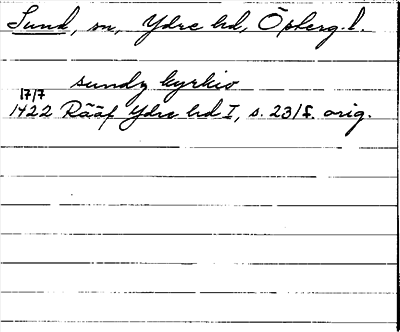 Sund, sn, Ydre hd, Öpberg.l.
sundz kyrkio
17/7
1422 Rääf Ydre hd I, s. 231f. orig.